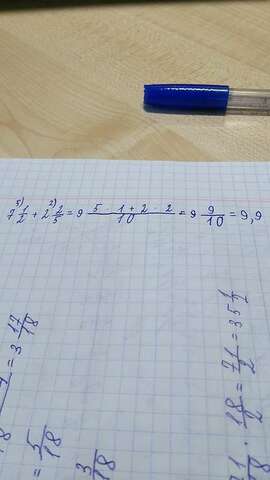 7 5) 1/2 + 2 2) 2/5 = 9 5 · 1 + 2 · 2/10 = 9 9/10 = 9,9
17/18
= 3
5/18
=
3/18
· 18/2 = 71/2 = 35 1/2